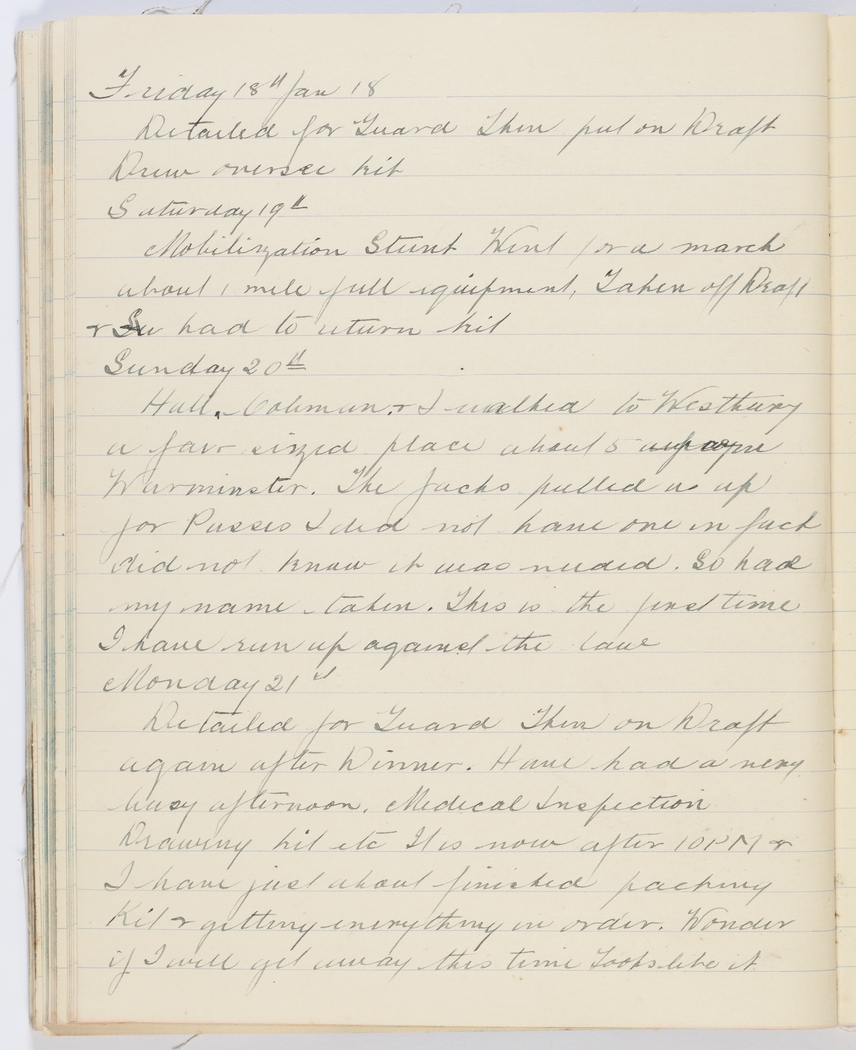 Friday 18th Jan 18
Detailed for Guard Then put on Draft
Drew oversee kit
Saturday 19th
Mobilization Stunt Went for a march
about 1 mile full equipment, Taken off Draft
& So had to return kit
Sunday 20th
Hall, Coleman & I walked to Westbury
a fair sized place about 5 from
Warminster. The Jacks pulled us up
for Passes I did not have one in fact
did not know it was needed. So had
my name taken. This is the first time
I have run up against the law
Monday 21st
Detailed for Guard Then on Draft
again after Dinner. Have had a very
busy afternoon. Medical Inspection
Drawing kit etc It is now after 10PM &
I have just about finished packing
Kit & getting everything in order. Wonder
if I will get away this time Looks like it